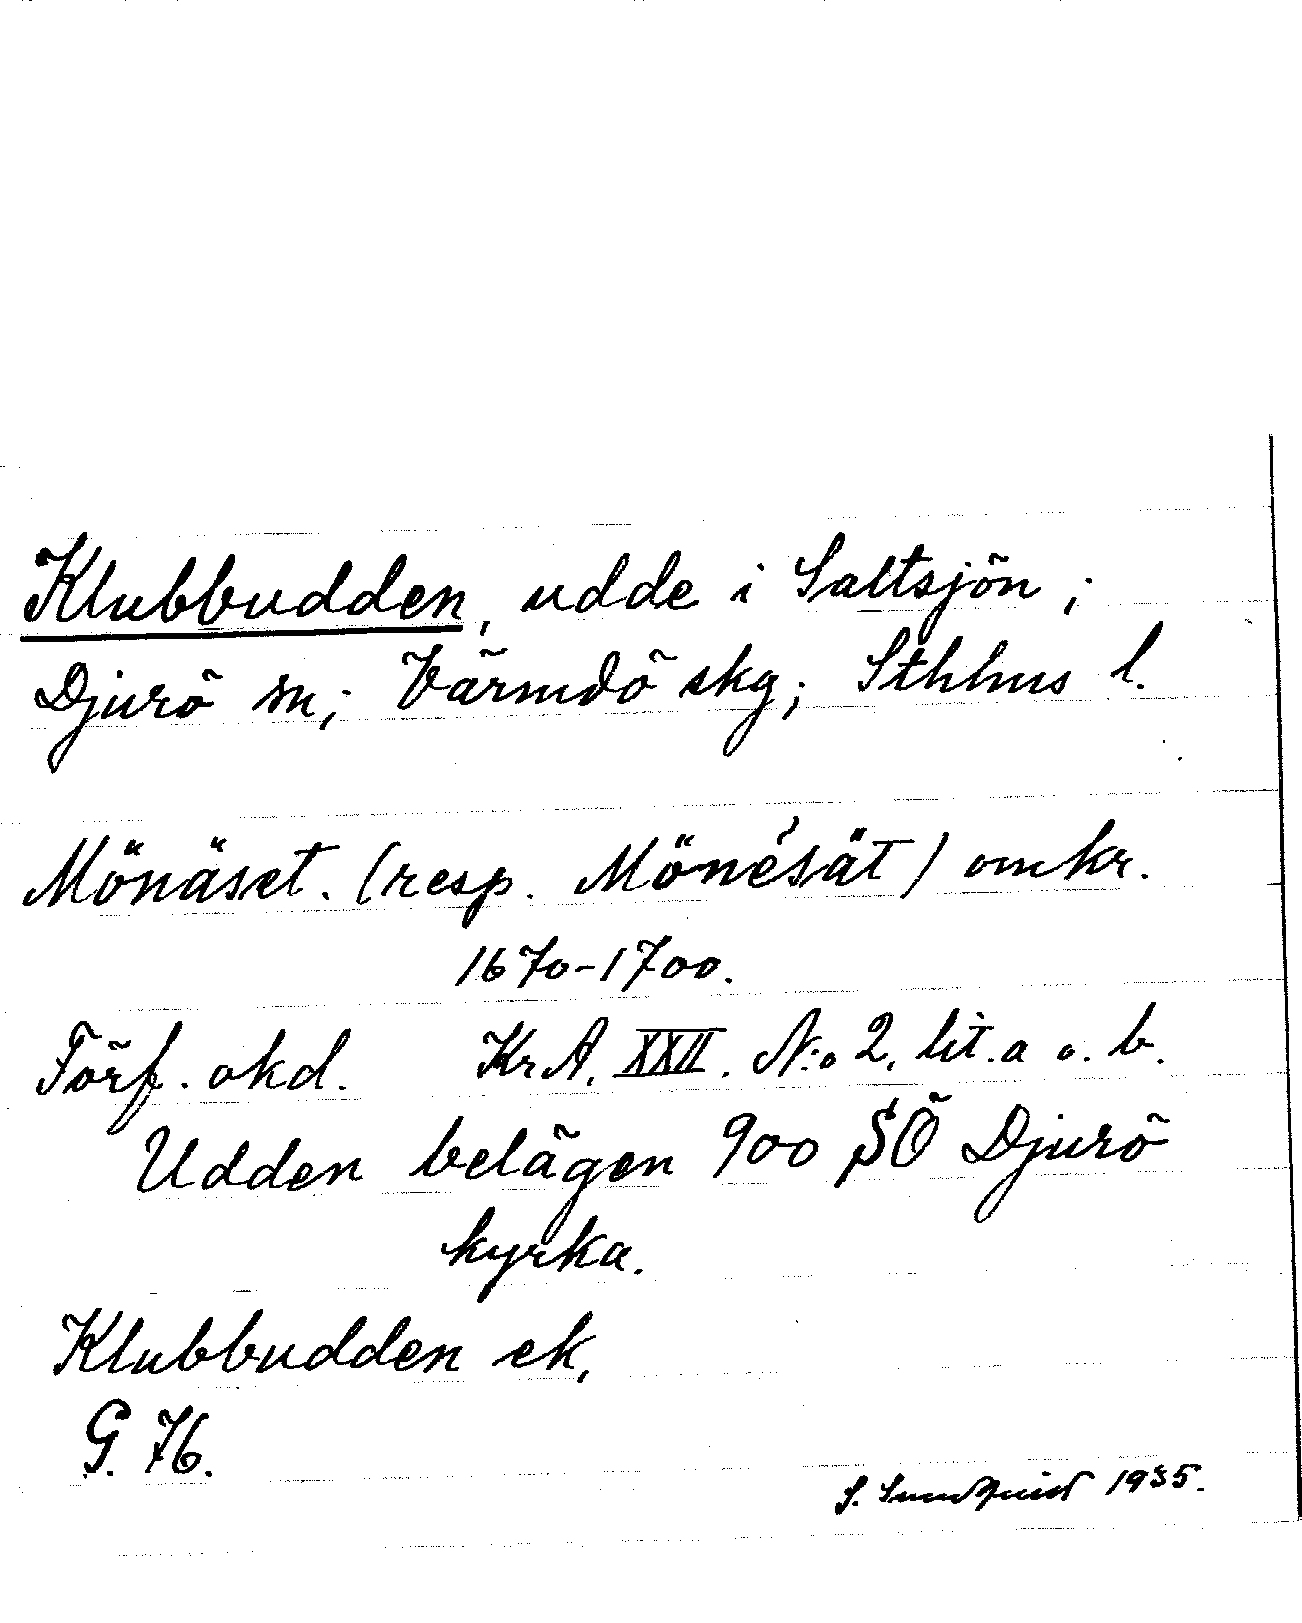 Klubbudden, udde i Saltsjön;
Djurö sn; Värmdö skg; Sthlms l.
Mönäset. (resp. Mönésät) omkr.
1670-1700.
Förf. okd. KrA. XXII. N:o 2, lit. a o. b.
Udden belägen 900 SÖ Djurö
kyrka.
Klubbudden ek,
G. 76.
S. Sundquist 1935.